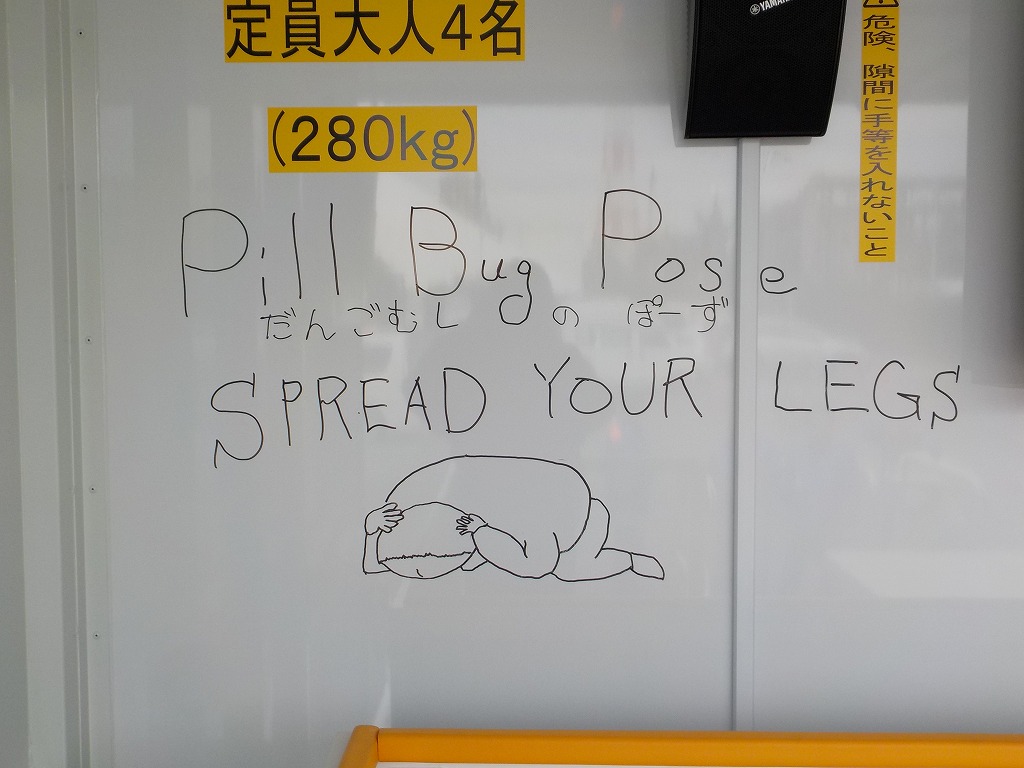 定員大人4名
(280kg)
YAMAHA
危険、隙間に手等を入れないこと
Pill Bug Pose
だんごむしの ぽーず
SPREAD YOUR LEGS